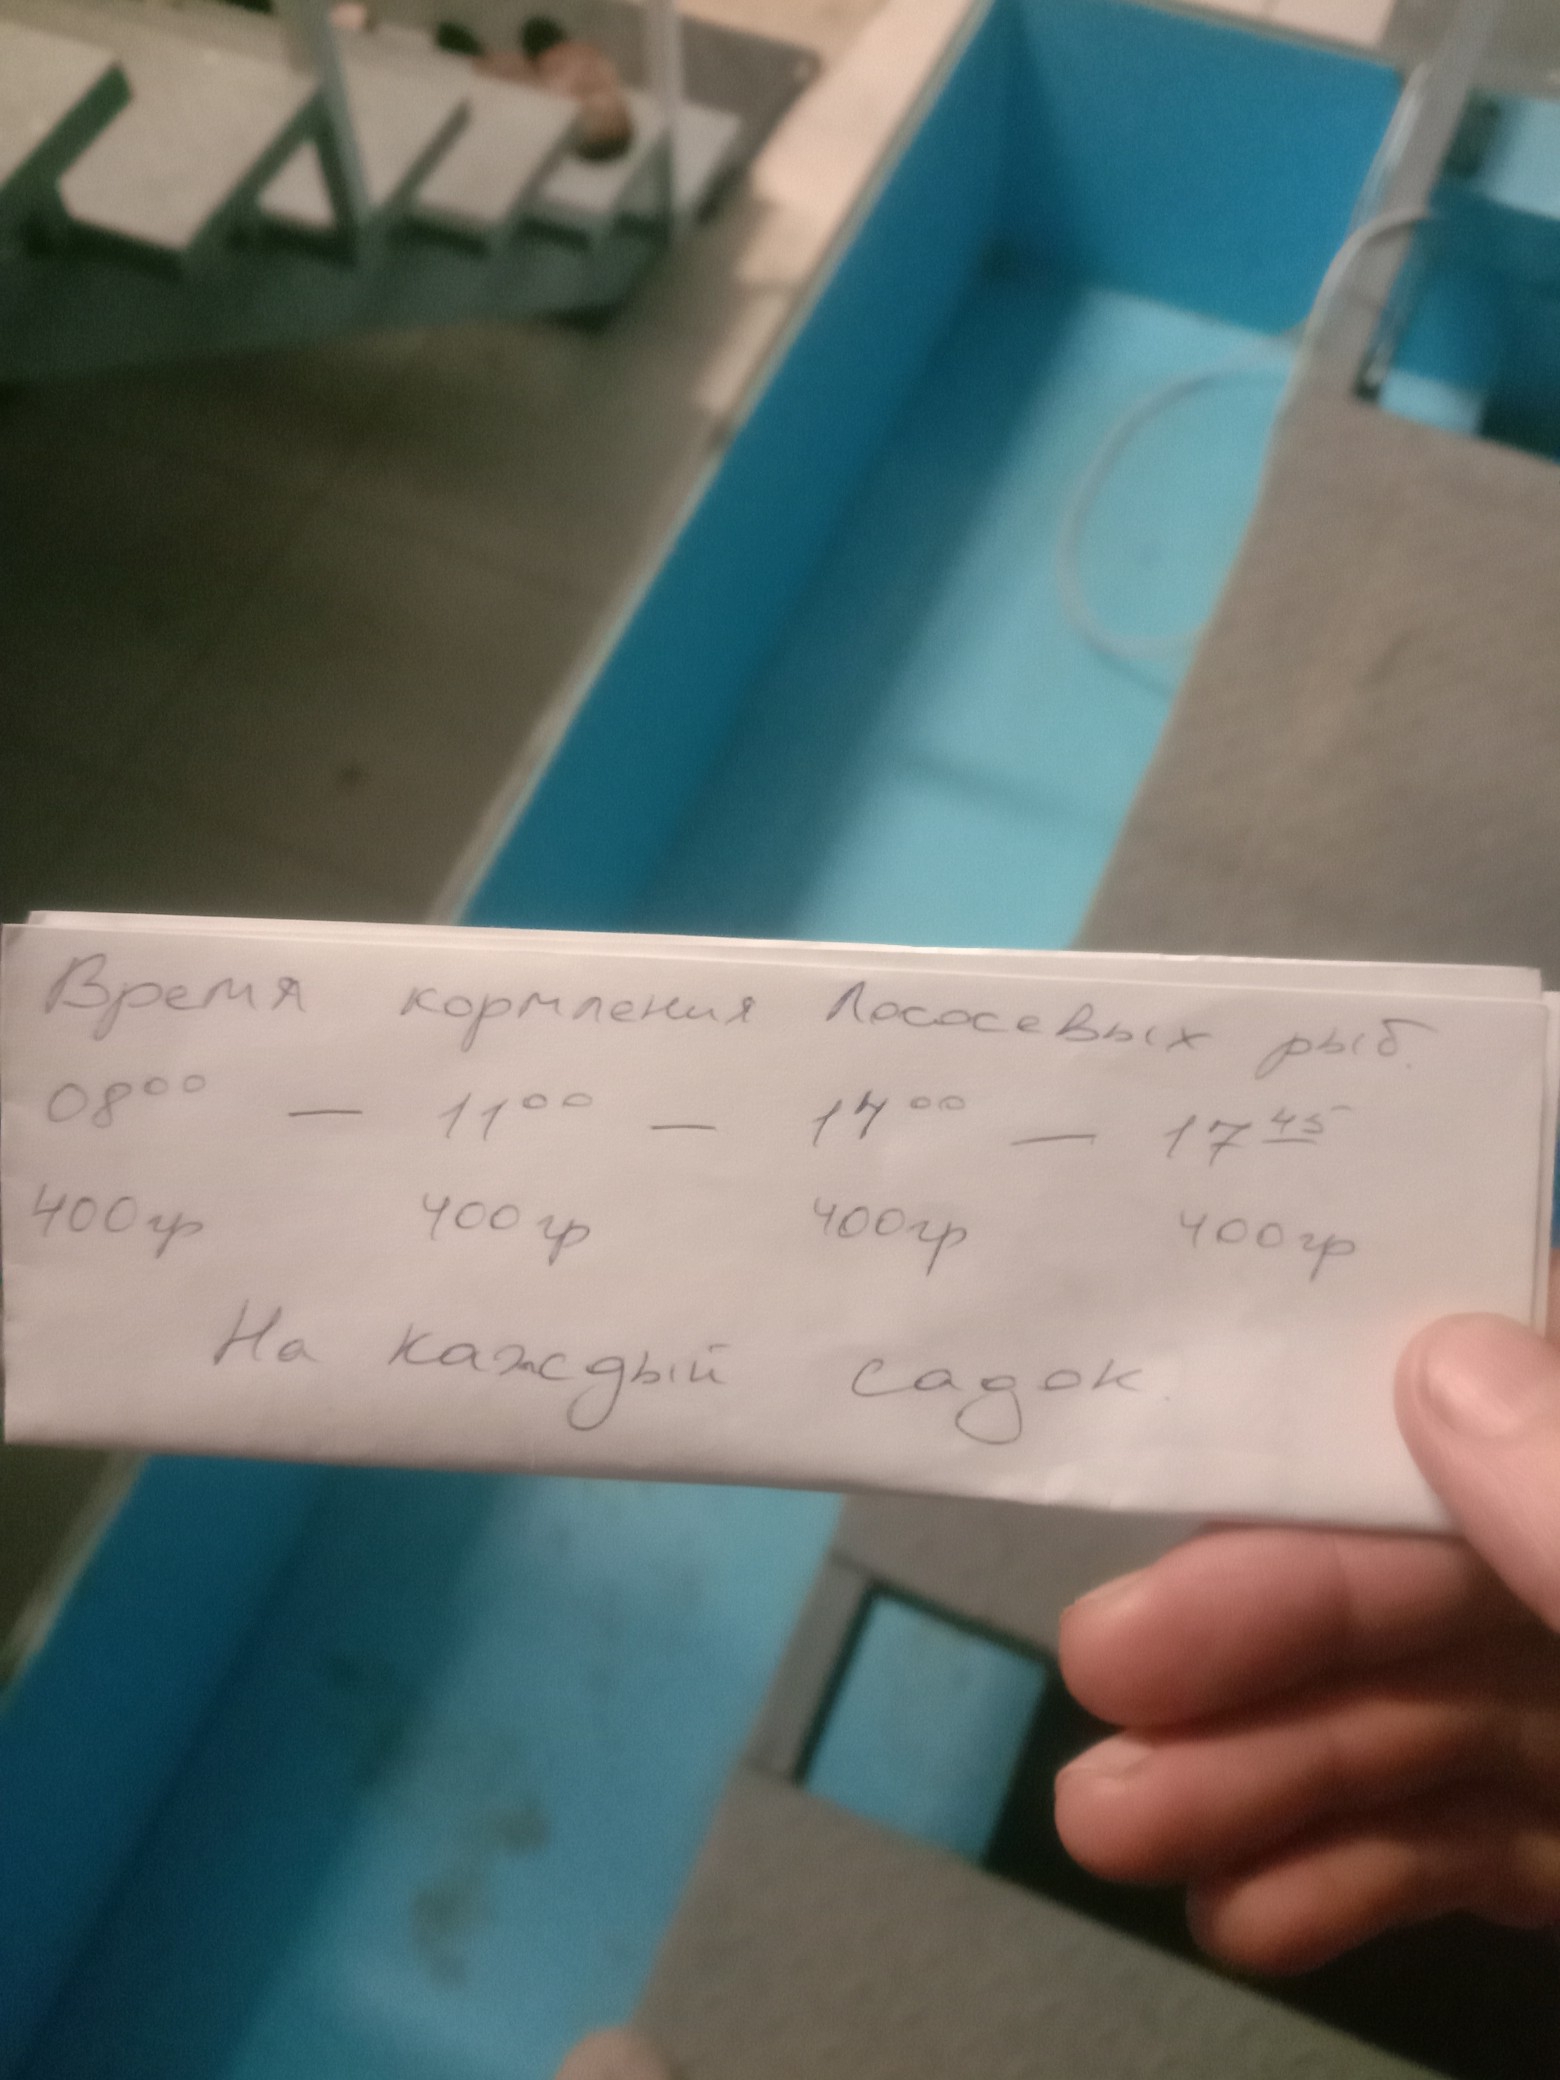 Время кормления Лососевых рыб.
08⁰⁰ — 11⁰⁰ — 14⁰⁰ — 17⁴⁵
400гр 400гр 400гр 400гр
На каждый садок.